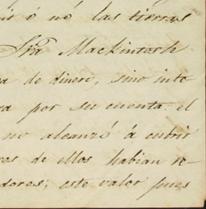 ó nó las tierras
Sra Mackintosh
a de dinero, sino inte
ra por su cuenta el
no alcanzó á cubrir
res de ellos habian re
dores; este valor pues